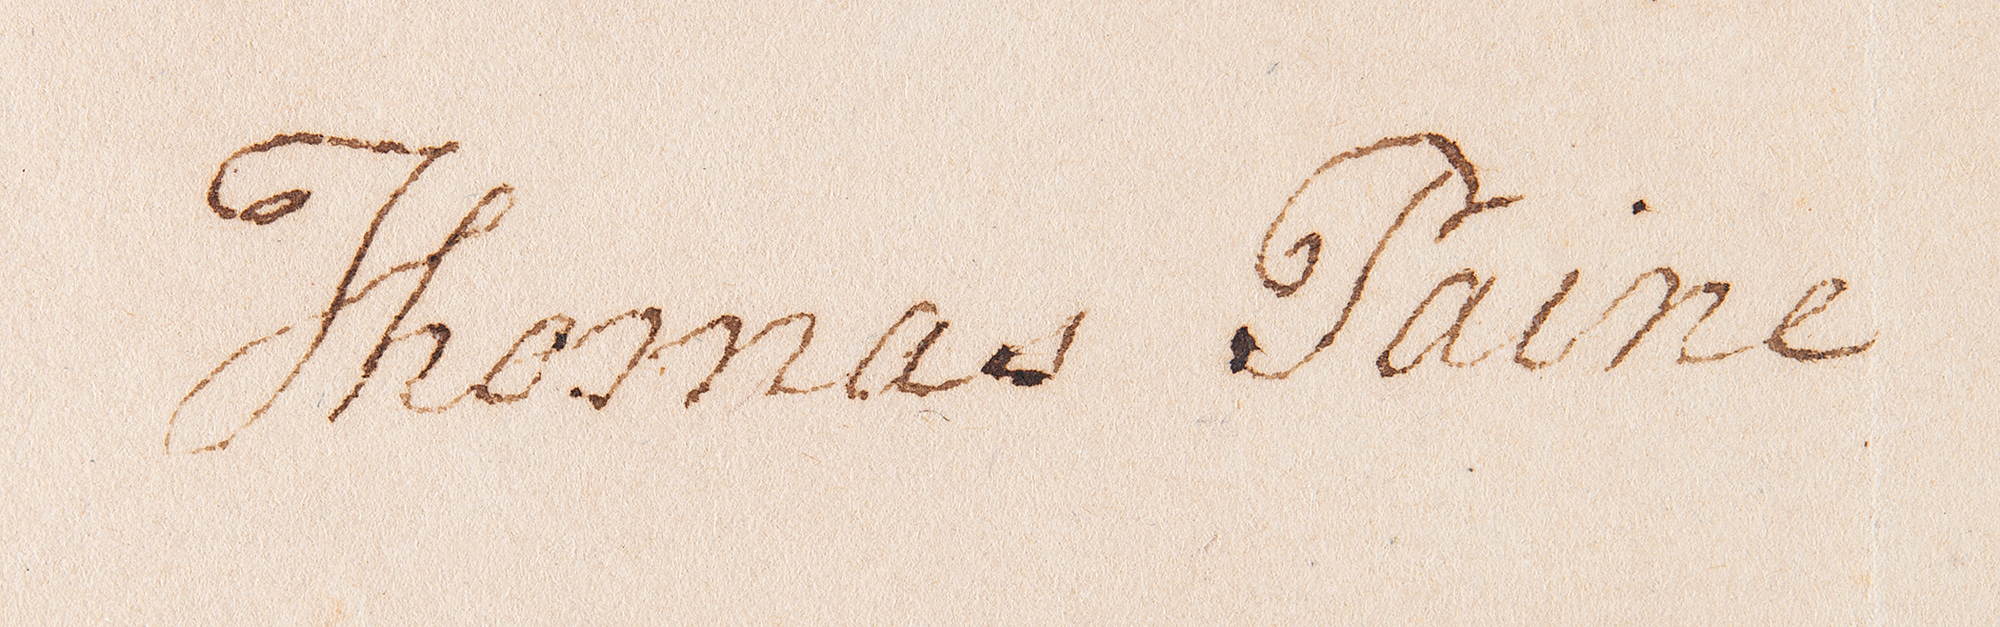 Thomas Paine